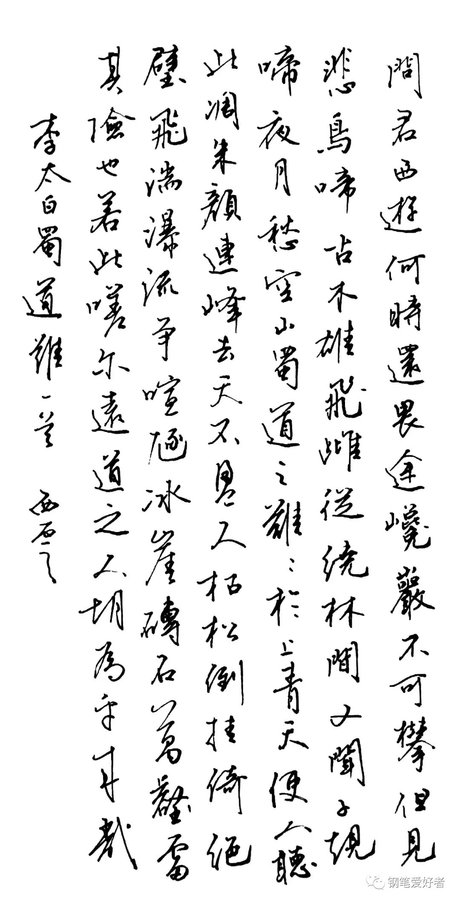 問君西遊何時還畏途巉巖不可攀但見
悲鳥啼古木雄飛雌從繞林間又聞子規
啼夜月愁空山蜀道之難〻於上青天使人聽
此凋朱顏連峰去天不盈尺枯松倒挂倚絕
壁飛湍瀑流爭喧豗冰崖磚石萬壑雷
其險也若此嗟尔遠道之人胡為乎来哉
李太白蜀道難一首
钢笔爱好者